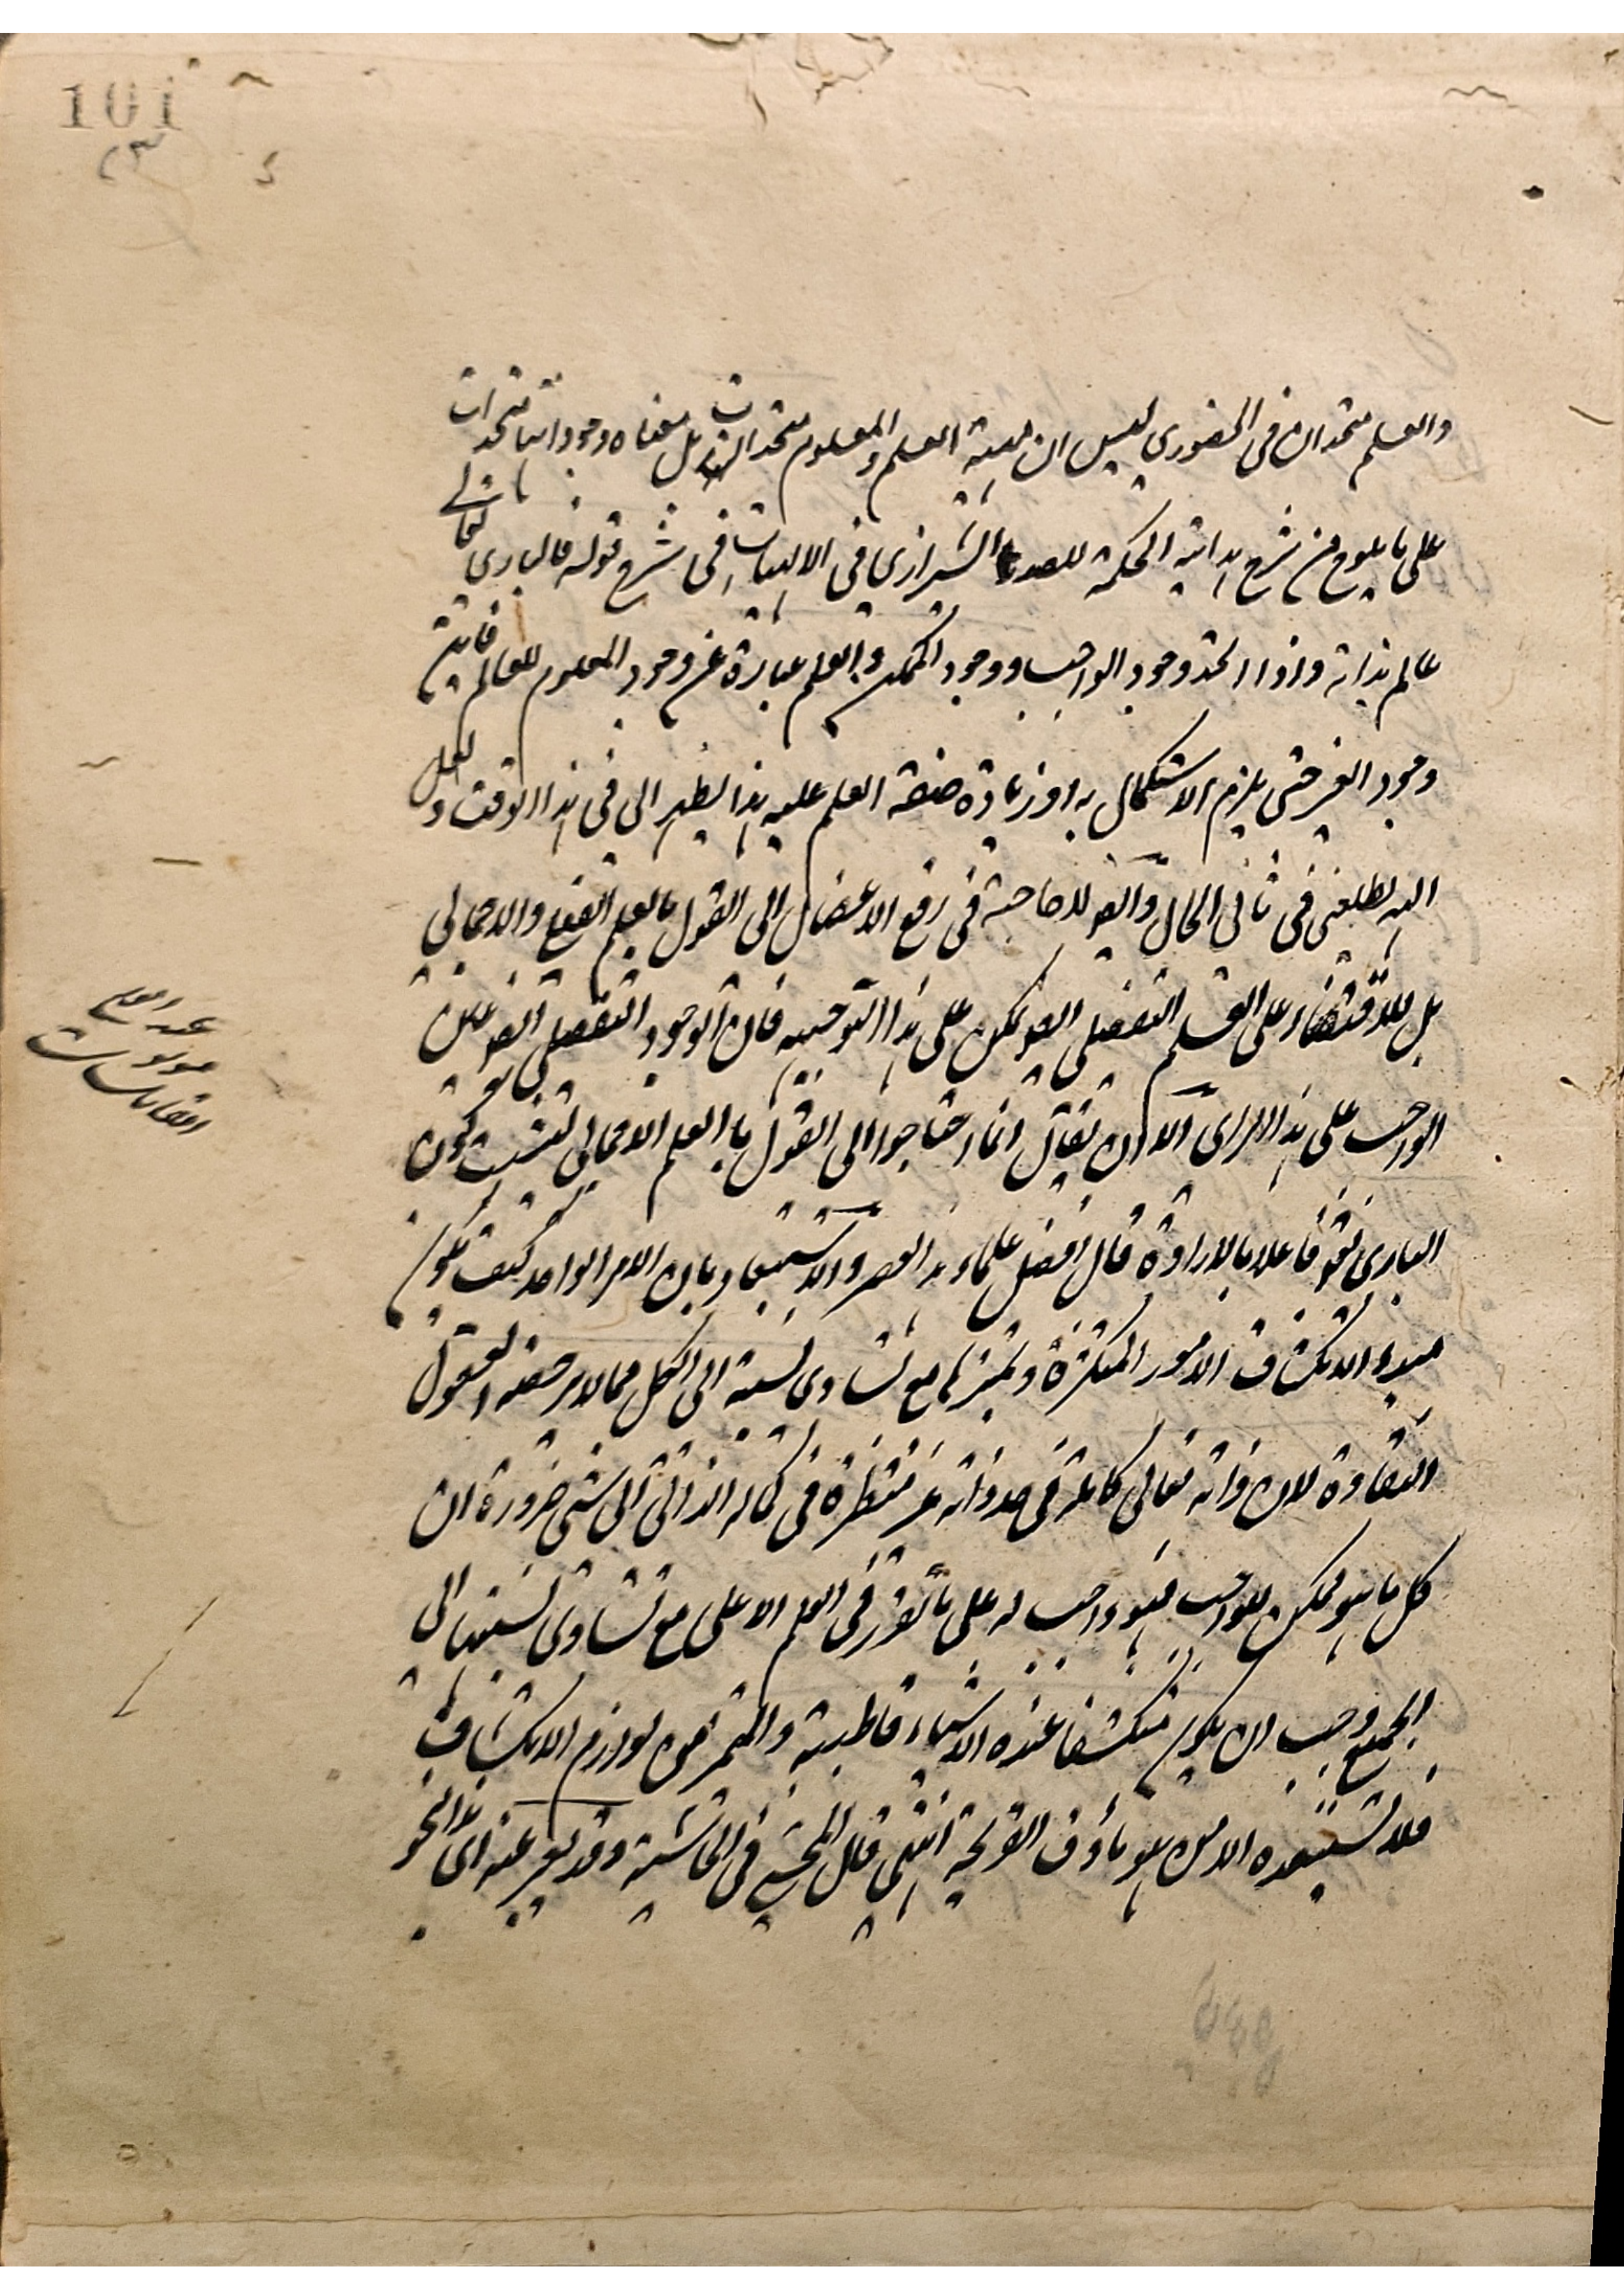 101
والعلم متحدان فى الحضوري ليس ان مهية العلم والمعلوم متحدان بل معناه وجوداتها متحدات
على ما يلوح من شرح هداية الحكمة للصدر الشيرازي فى الالهيات فى شرح قوله فالباري تعالى
عالم بذاته واذا اتحد وجود الواجب ووجود الممكن والعلم عبارة عن وجود المعلوم للعالم فاين
وجود الغير حتى يلزم الاستكمال به او زيادة صفة العلم عليه هذا يظهر الى فى هذا الوقت ولعل
الله يطلعنى فى ثانى الحال وايضا لا حاجة فى رفع الاعضال الى القول بالعلم الفعلى والاجمالي
بل للاقتصار على العلم التفصيلى ايضا يمكن على هذا التوجيه فان الوجود التفصيلى ايضا عين
الواجب على هذا الراى الا ان يقال انما احتاجوا الى القول بالعلم الاجمالى لتثبت كون
البارى تعالى فاعلا بالارادة قال افضل علماء هذا العصر والاستبعاد بان الامر الواحد كيف يكون
مبدء الانكشاف الامور المتكثرة وتميزها مع تساوى نسبته الى الكل مما لا يرتضه العقول
النقادة لان ذاته تعالى كاملة فى حد ذاته غير منتظرة فى كماله الذاتى الى شئ ضرورة ان
كل ما هو ممكن للواجب فهو واجب له على ما تقرر فى العلم الاعلى مع تساوى نسبتها الى
الجميع وجب ان يكون منكشفا عنده الاشياء قاطبة والتميز من لوازم الانكشاف
فلا يستبعده الا من هو ماؤف القريحة انتهى قال المحشي فى الحاشية وقد يعبر عنه اى هذا النحو